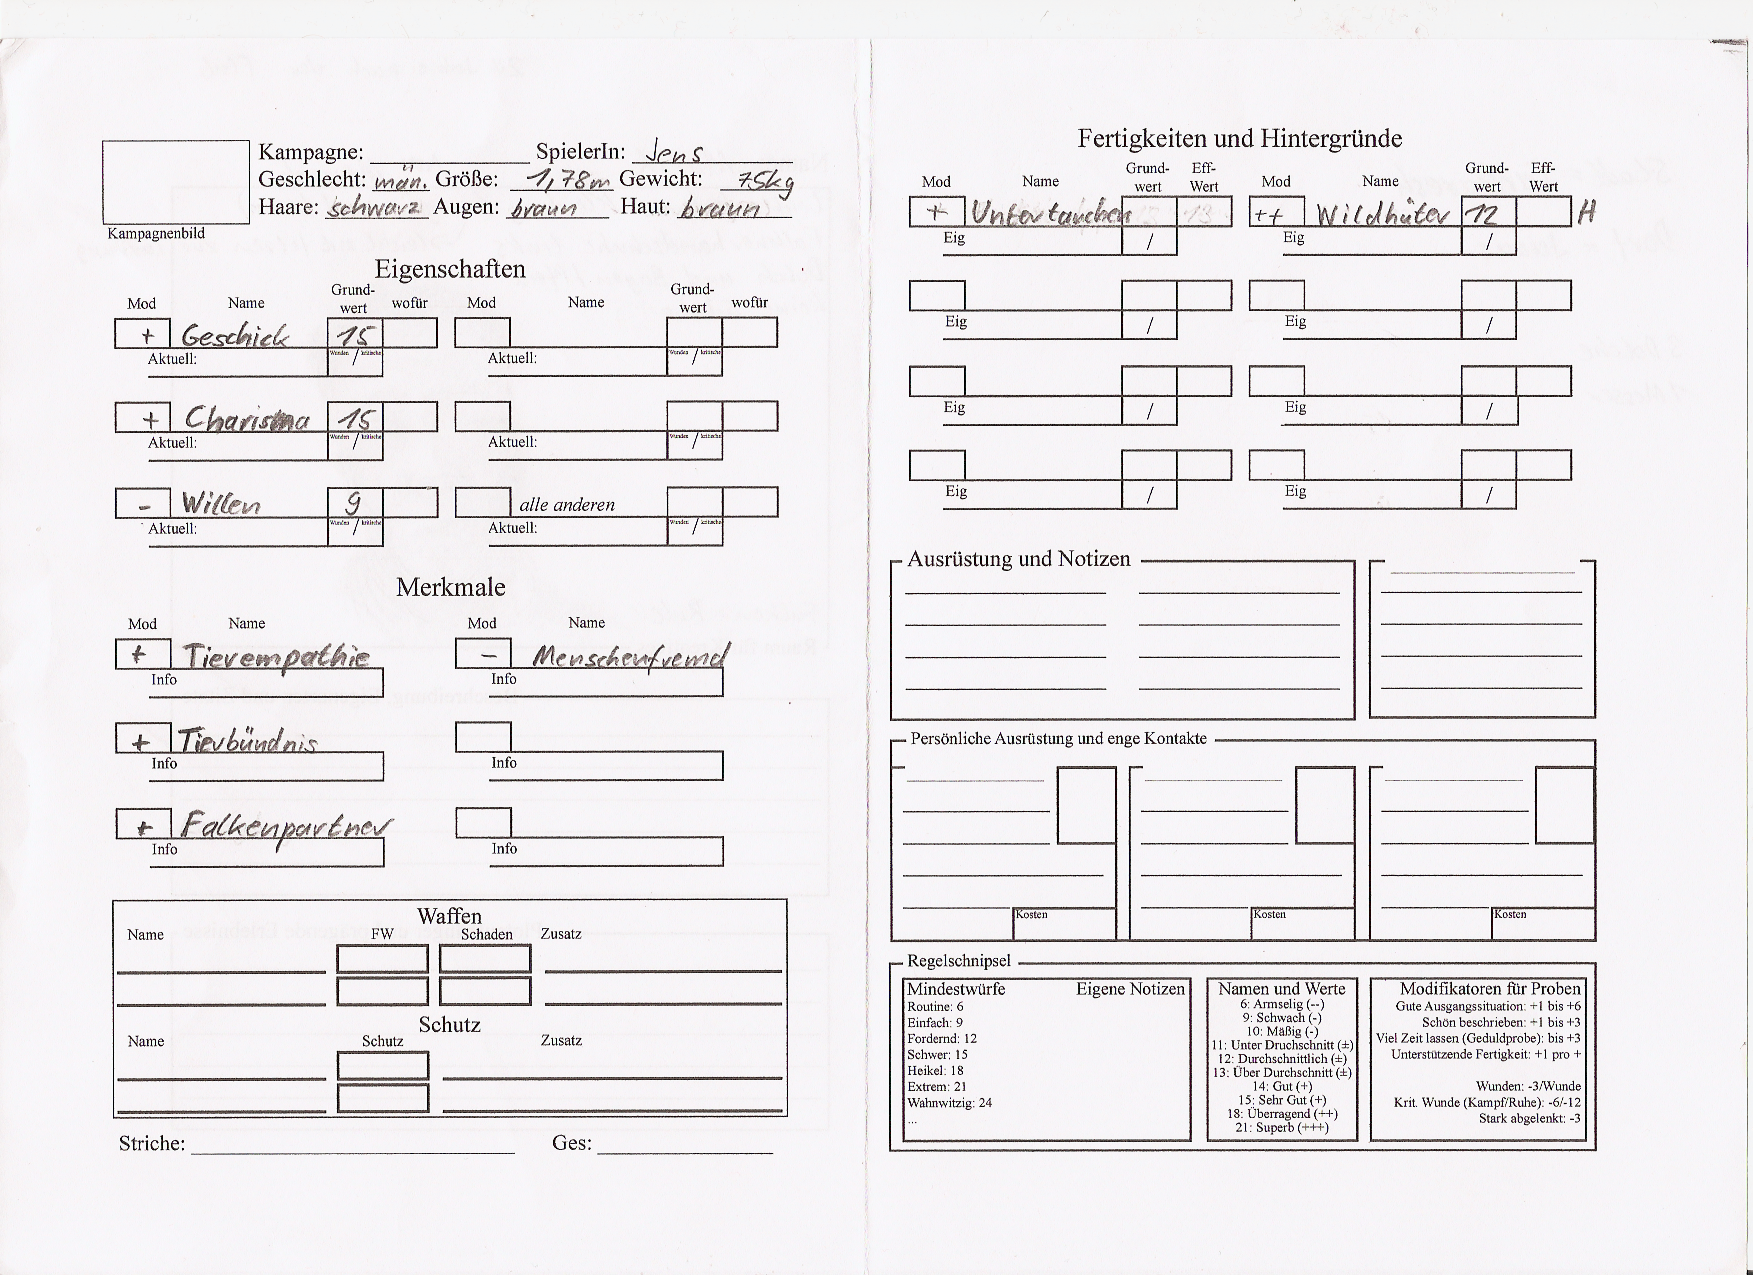 Kampagne: SpielerIn: Jens
Geschlecht: män. Größe: 1,78m Gewicht: 75kg
Haare: schwarz Augen: braun Haut: braun
Kampagnenbild
Eigenschaften
Mod Name Grund-wert wofür Mod Name Grund-wert wofür
+ Geschick 15
Aktuell: Wunden / kritische Aktuell: Wunden / kritische
+ Charisma 15
Aktuell: Wunden / kritische Aktuell: Wunden / kritische
- Willen 9 alle anderen
Aktuell: Wunden / kritische Aktuell: Wunden / kritische
Merkmale
Mod Name Mod Name
+ Tierempathie - Menschenfremd
Info Info
+ Tierbündnis
Info Info
+ Falkenpartner
Info Info
Waffen
Name FW Schaden Zusatz
Schutz
Name Schutz Zusatz
Striche: Ges:
Fertigkeiten und Hintergründe
Mod Name Grund-wert Eff-Wert Mod Name Grund-wert Eff-Wert
+ Untertauchen 13 ++ Wildhüter 12 H
Eig / Eig /
Eig / Eig /
Eig / Eig /
Eig / Eig /
Ausrüstung und Notizen
Persönliche Ausrüstung und enge Kontakte
Kosten Kosten Kosten
Regelschnipsel
Mindestwürfe Eigene Notizen
Routine: 6
Einfach: 9
Fordernd: 12
Schwer: 15
Heikel: 18
Extrem: 21
Wahnwitzig: 24
...
Namen und Werte
6: Armselig (--)
9: Schwach (-)
10: Mäßig (-)
11: Unter Druchschnitt (±)
12: Durchschnittlich (±)
13: Über Durchschnitt (±)
14: Gut (+)
15: Sehr Gut (+)
18: Überragend (++)
21: Superb (+++)
Modifikatoren für Proben
Gute Ausgangssituation: +1 bis +6
Schön beschrieben: +1 bis +3
Viel Zeit lassen (Geduldprobe): bis +3
Unterstützende Fertigkeit: +1 pro +
Wunden: -3/Wunde
Krit. Wunde (Kampf/Ruhe): -6/-12
Stark abgelenkt: -3